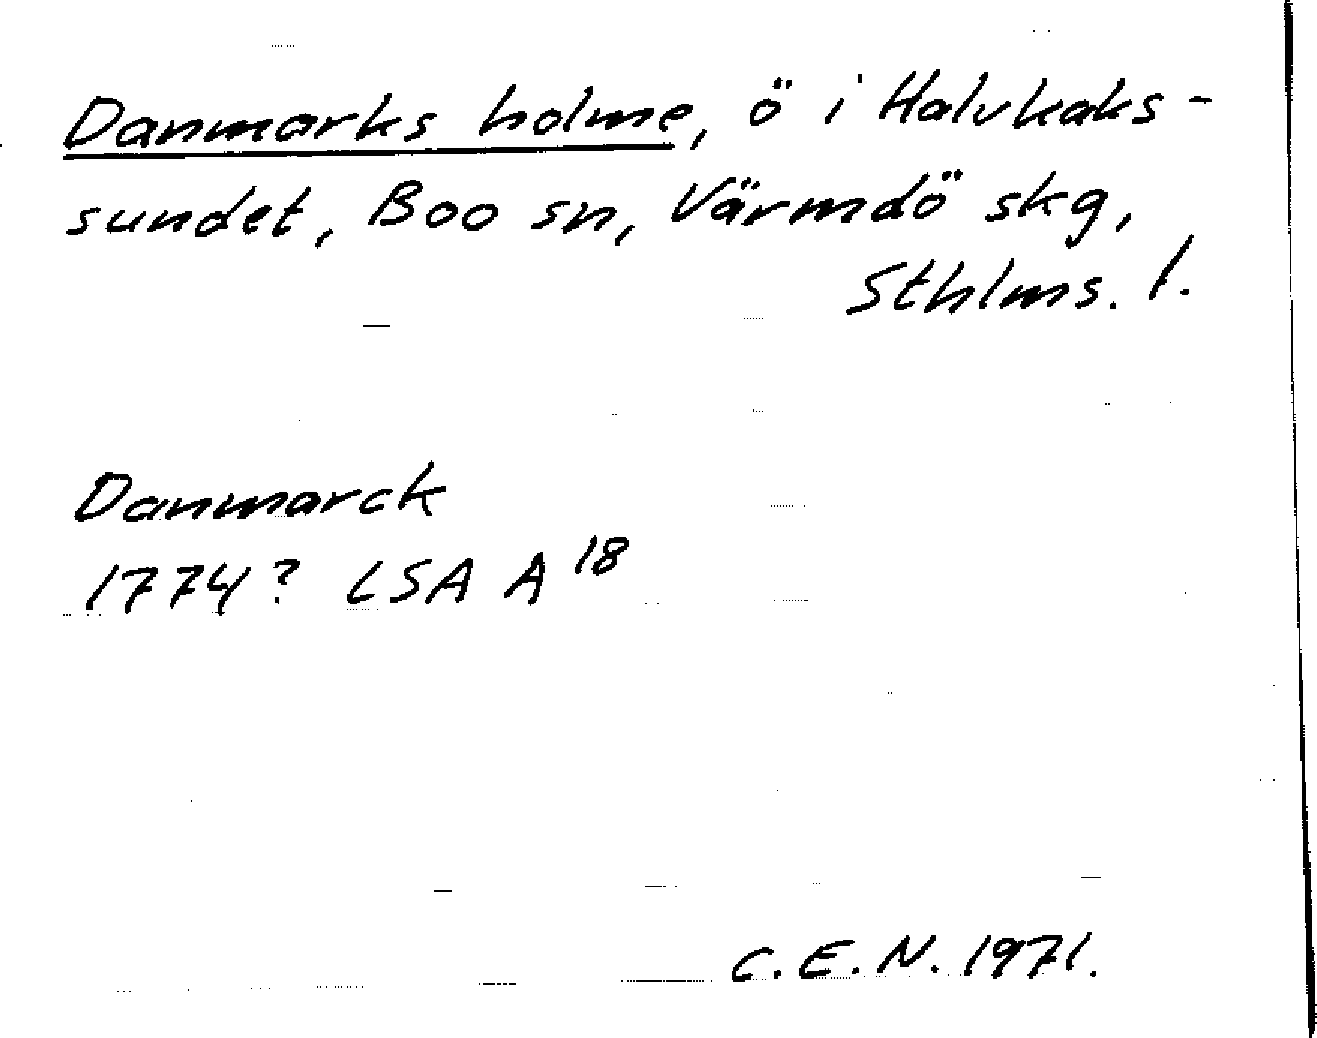 Danmarks holme, ö i Halvkaks-
sundet, Boo sn, Värmdö skg,
Sthlms. l.
Danmarck
1774? LSA A 18
C.E.N. 1971.